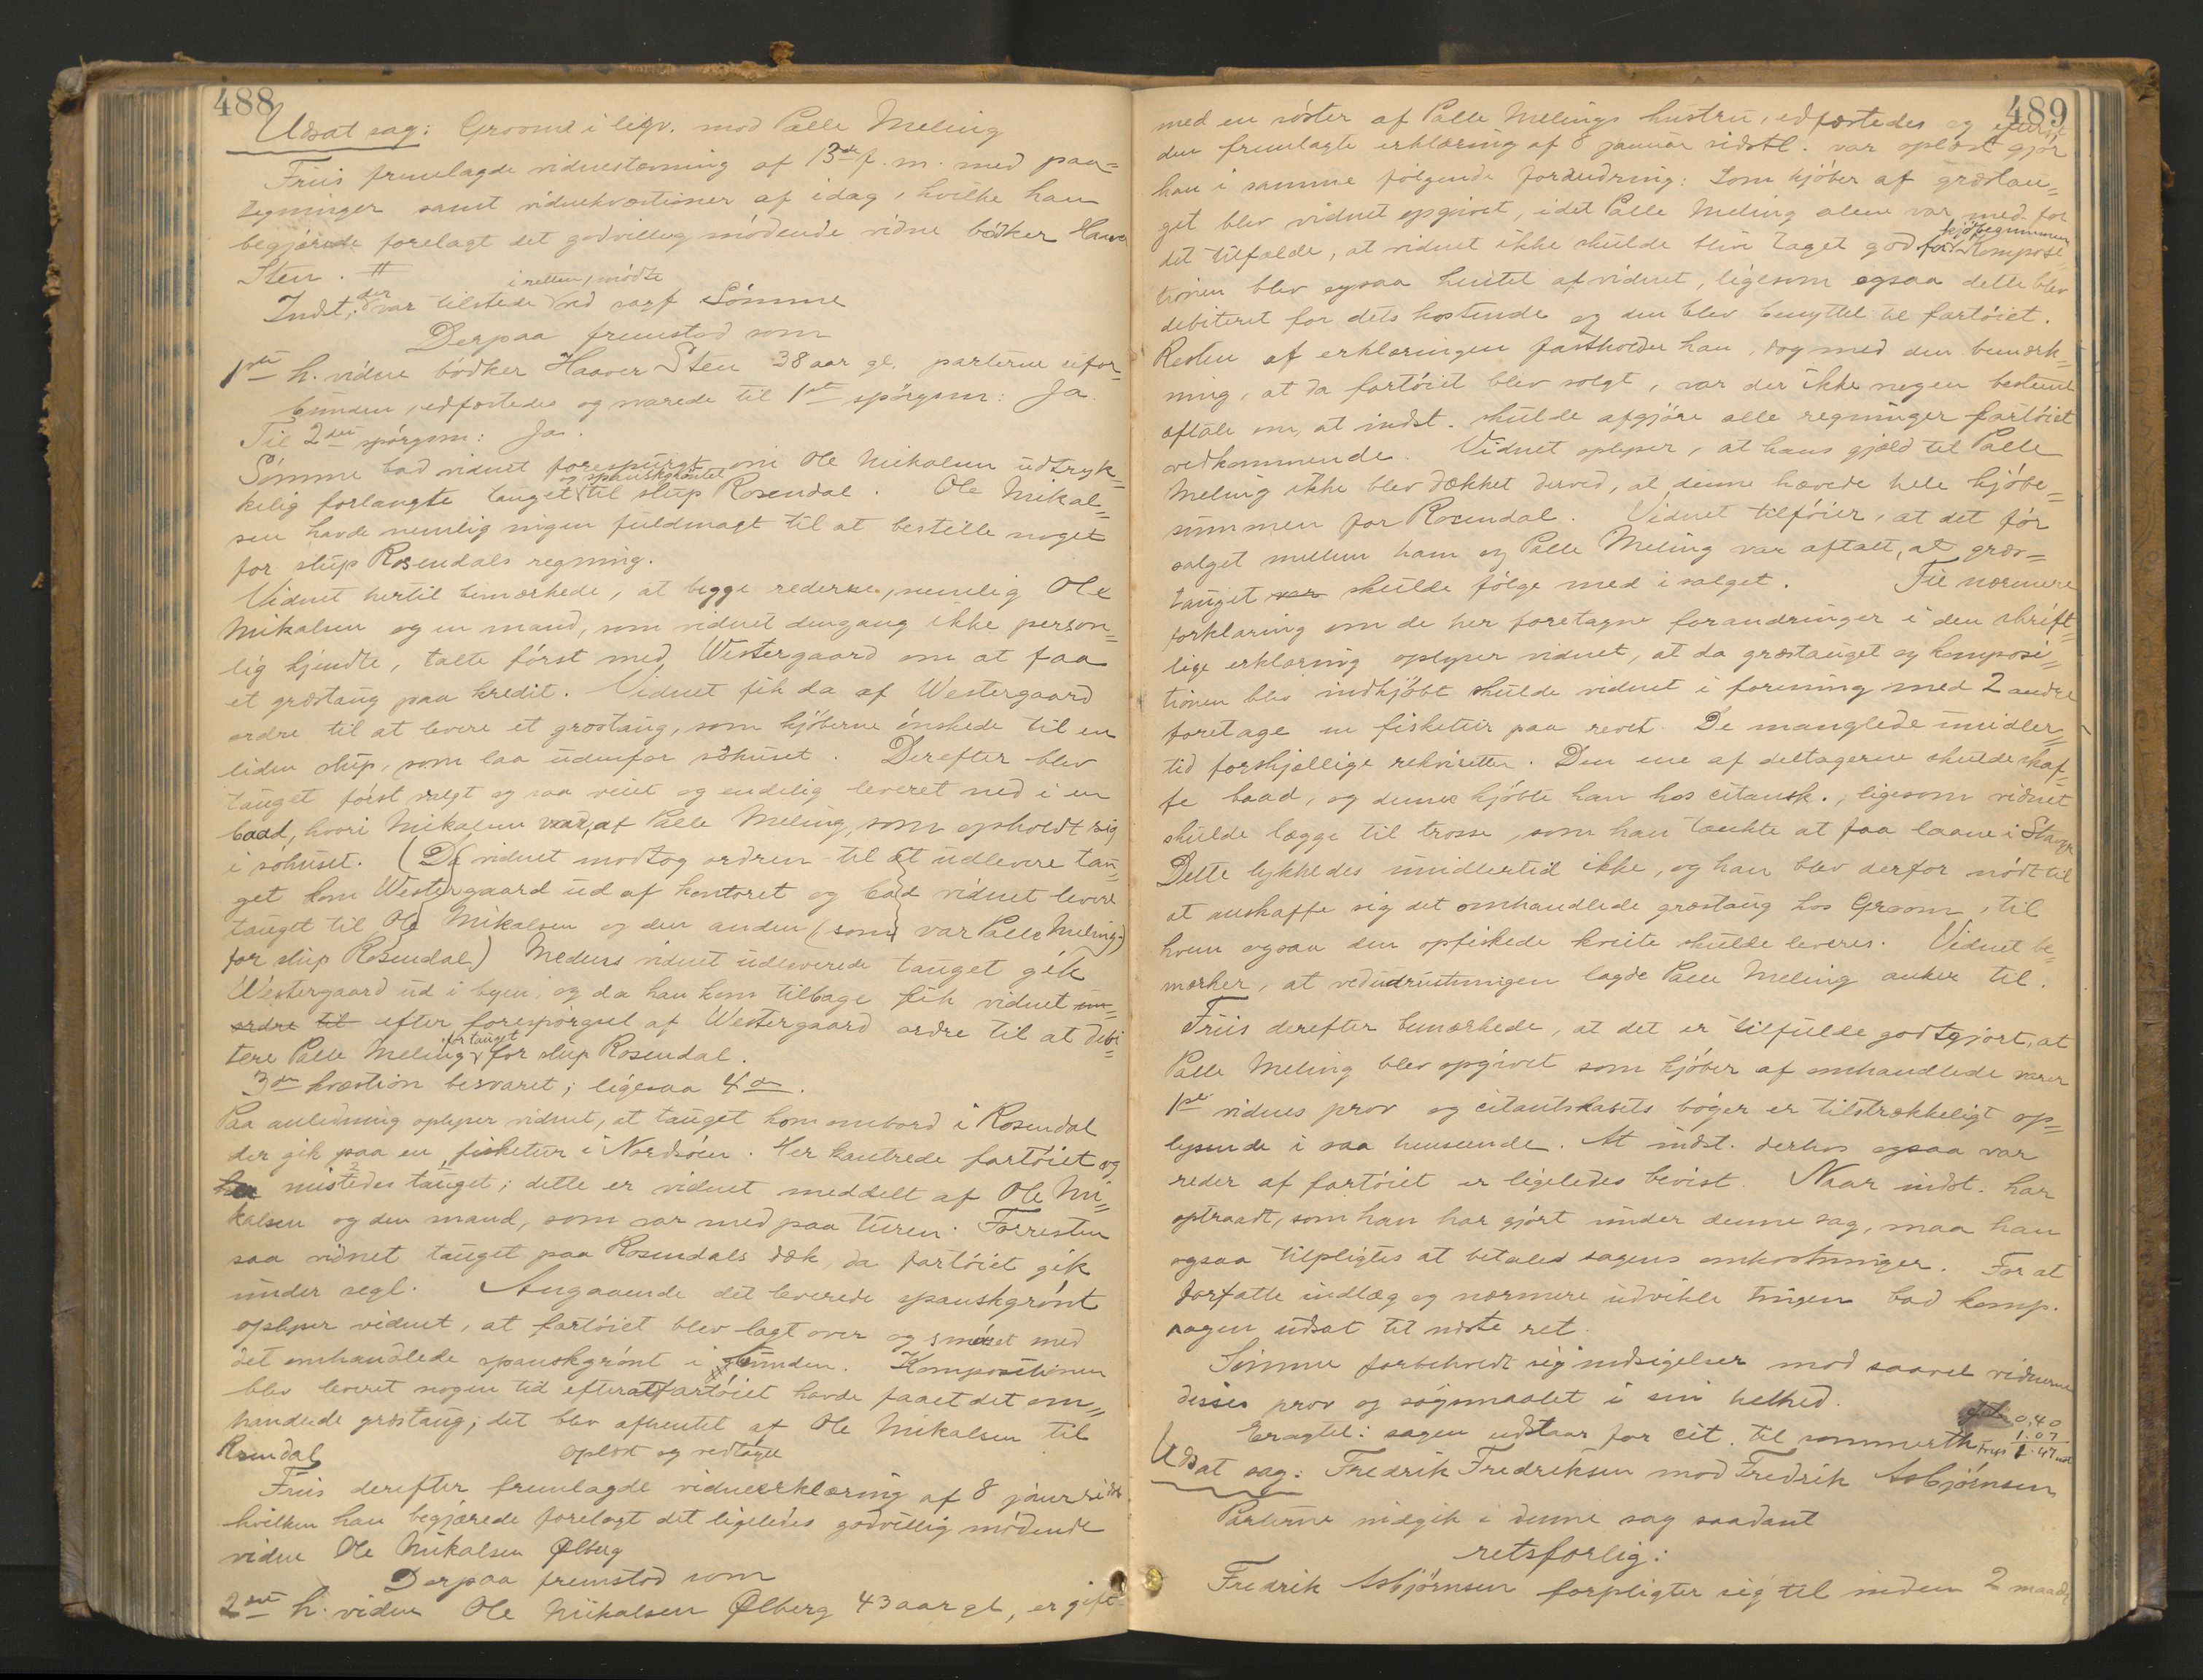 488
Udsat sag: Groomd i liqv. mod Palle Meling
Friis fremlagde vidnestævning af 13de f. m. med paa-
tegninger samt vidnekvæstioner af idag, hvilke han
begjærede forelagt det godvillig mødende vidne bødker Haaver
Sten. #
i retten, mødte
Indst. der var tilstede ved sagf Sømme
Derpaa fremstod som
1ste h. vidne bødker Haaver Sten 38 aar gl. parterne ufor-
bunden, edfæstedes og svarede til 1ste spørgsm: Ja.
Til 2det spørgsm: Ja.
Sømme bad vidnet forespurgt om Ole Mikalsen udtryk-
og spanskgrøntet
kelig forlangte tauget til slup Rosendal. Ole Mikal-
sen havde nemlig ingen fuldmagt til at bestille noget
for slup Rosendals regning.
Vidnet hertil bemærkede, at begge rederne, nemlig Ole
Mikalsen og en mand, som vidnet dengang ikke person-
lig kjendte, talte først med Westergaard om at faa
et græstaug paa kredit. Vidnet fik da af Westergaard
ordre til at levere et græstaug, som kjøberne ønskede til en
liden slup, som laa udenfor søhuset. Derefter blev
tauget først valgt og saa veiet og endelig leveret ned i en
baad, hvori Mikalsen var, af Palle Meling, som opholdt sig
i søhuset. (Da vidnet modtog ordren til at udlevere tau-
get kom Westergaard ud af kontoret og bad vidnet levere
tauget til Ole Mikalsen og den anden (som var Palle Meling)
for slup Rosendal) Medens vidnet udleverede tauget gik
Westergaard ud i byen, og da han kom tilbage fik vidnet
ordre til efter forespørgsel af Westergaard ordre til at debi-
for tauget
tere Palle Meling for slup Rosendal.
3die kvæstion besvaret; ligesaa 4de.
Paa anledning oplyser vidnet, at tauget kom ombord i Rosendal
der gik paa en fisketur i Nordsøen. Her kantrede fartøiet og
her mistedes tauget; dette er vidnet meddelt af Ole Mi-
kalsen og den mand, som var med paa turen. Forresten
saa vidnet tauget paa Rosendals dæk, da fartøiet gik
under segl. Angaaende det leverede spanskgrønt
oplyser vidnet, at fartøiet blev lagt over og smøret med
det omhandlede spanskgrønt i bunden. Kompositionen
blev leveret nogen tid efterat fartøiet havde faaet det om-
handlede græstaug; det blev afhentet af Ole Mikalsen til
Rosendal
Oplæst og vedtaget
Friis derefter fremlagde vidneerklæring af 8 januar sidstl.
hvilken han begjærede forelagt det ligeledes godvillig mødende
vidne Ole Mikalsen Ølberg
Derpaa fremstod som
2det h. vidne Ole Mikalsen Ølberg 43 aar gl, er gift
489
med en søster af Palle Melings hustru, edfæstedes og efterat
den fremlagte erklæring af 8 januar sidstl. var oplæst gjør
han i samme følgende forandring: Som kjøber af græstau-
get blev vidnet opgivet, idet Palle Meling alene var med for
kjøbesummen
det tilfælde, at vidnet ikke skulde blive taget god for. Komposi-
tionen blev ogsaa hentet af vidnet, ligesom ogsaa dette blev
debiteret for dets kostende og den blev benyttet til fartøiet.
Resten af erklæringen fastholder han, dog med den bemærk-
ning, at da fartøiet blev solgt, var der ikke nogen bestemt
aftale om, at indst. skulde afgjøre alle regninger fartøiet
vedkommende. Vidnet oplyser, at hans gjæld til Palle
Meling ikke blev dækket derved, at denne hævede hele kjøbe-
summen for Rosendal. Vidnet tilføier, at det før
salget mellem ham og Palle Meling var aftalt, at græs-
tauget var skulde følge med i salget. Til nærmere
forklaring om de her foretagne forandringer i den skrift-
lige erklæring oplyser vidnet, at da græstauget og komposi-
tionen blev indkjøbt skulde vidnet i forening med 2 andre
foretage en fisketur paa revet. De manglede imidler-
tid forskjellige rekvisitter. Den ene af deltagerne skulde skaf-
fe baad, og denne kjøbte han hos citantsk., ligesom vidnet
skulde lægge til trosse, som han tænkte at faa laane i Stavgr
Dette lykkedes imidlertid ikke, og han blev derfor nødt til
at anskaffe sig det omhandlede græstaug hos Groom, til
hvem ogsaa den opfiskede kveite skulde leveres. Vidnet be-
mærker, at ved udrustningen lagde Palle Meling anker til.
Friis derefter bemærkede, at det er tilfulde godtgjort, at
Palle Meling blev opgivet som kjøber af omhandlede varer
1ste vidnes prov og citantskabets bøger er tilstrækkeligt op-
lysende i saa henseende. At indst. derhos ogsaa var
reder af fartøiet er ligeledes bevist. Naar indst. har
optraadt, som han har gjort under denne sag, maa han
ogsaa tilpligtes at betale sagens omkostninger. For at
forfatte indlæg og nærmere udvikle tingen bad komp.
sagen udsat til næste ret.
Sømme forbeholdt sig indsigelser mod saavel vidnerne
disses prov og søgsmaalet i sin helhed.
0,40
Eragtet: sagen udstaar for cit. til sommerth
1.07
1.47
Udsat sag: Fredrik Fredriksen mod Fredrik Asbjørnsen
Parterne indgik i denne sag saadant
retsforlig:
Fredrik Asbjørnsen forpligter sig til inden 2 maaneder